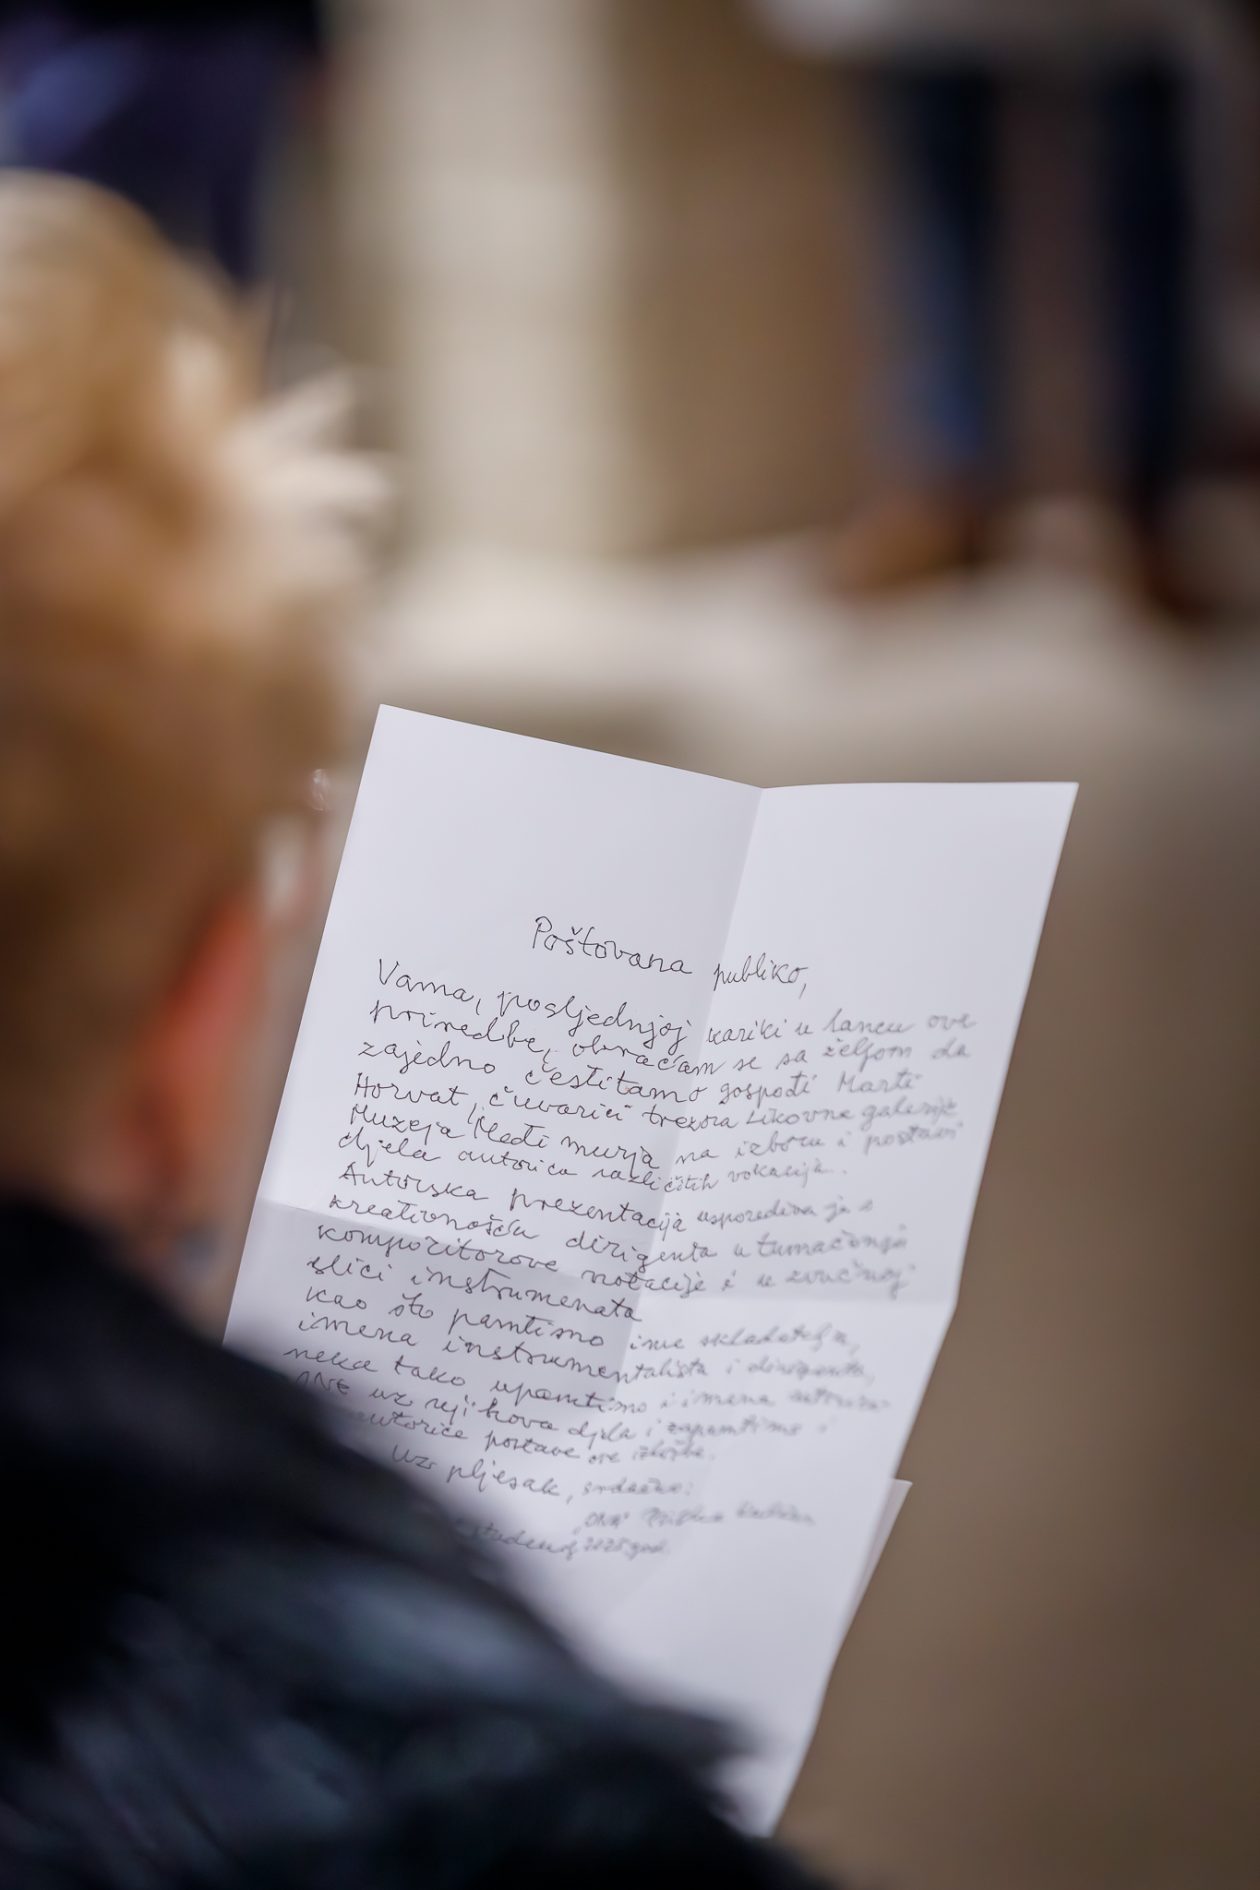 Poštovana publiko,
Vama, posljednjoj kariki u lancu ove
priredbe, obraćam se sa željom da
zajedno čestitamo gospođi Marti
Horvat, čuvarici trezora Likovne galerije
Muzeja Međimurja na izboru i postavi
djela autorica različitih vokacija.
Autorska prezentacija usporediva je s
kreativnošću dirigenta u tumačenju
kompozitorove notacije i u zvučnoj
slici instrumenata
kao što pamtimo ime skladatelja,
imena instrumentalista i dirigenta,
neka tako upamtimo i imena autorica
ONE uz njihova djela i zapamtimo i
autorice postave ove izložbe.
Uz pljesak, srdačno:
"ONA"
studenog 2025. god.